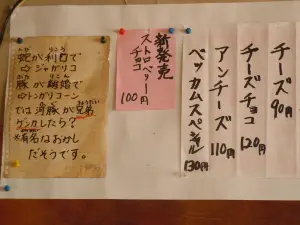 チーズ 90円
チーズチョコ 120円
アンチーズ 110円
ベッカムスペシャル 130円
新発売
ストロベリー
チョコ
100円
蛇が利口で
⇨ジャガリコ
豚が離婚で
⇨トンガリコーン
では海豚が兄弟
ゲンカしたら?
※有名なおかし
だそうです。